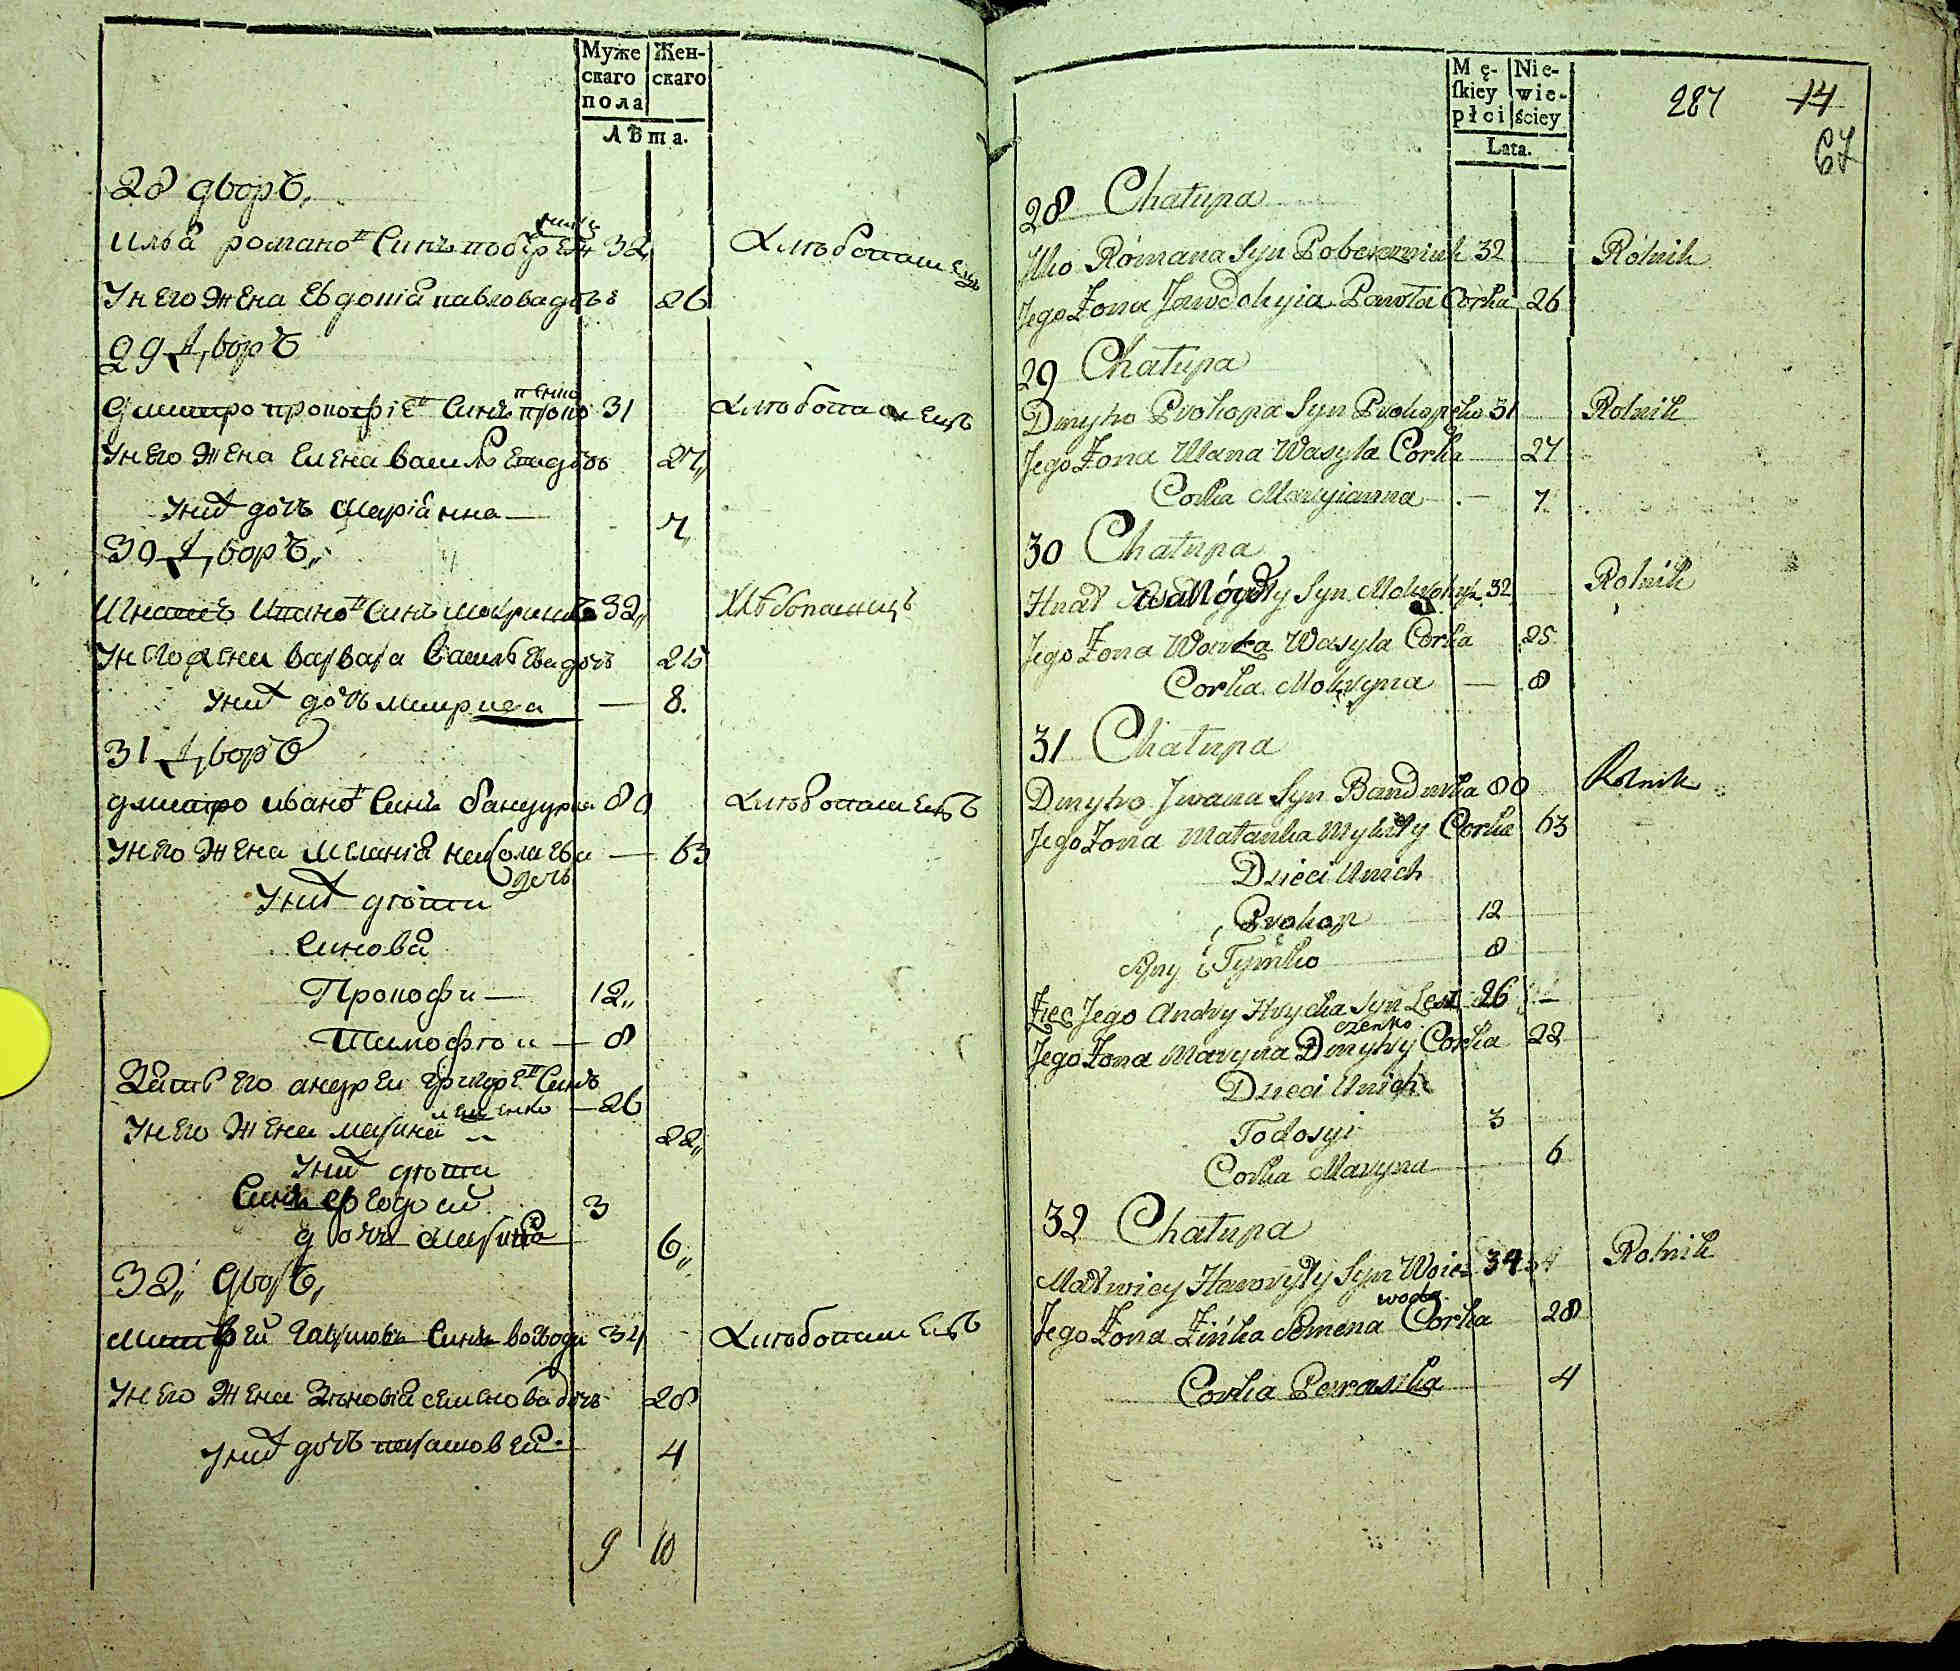 Муже Жен-
скаго скаго
пола
Лѣта.
28 дворъ,
никъ
Илья романовъ Синъ побереж 32, Хлѣбопашецъ
У него Жена Евдокия павлова дочь 26
29 Дворъ
пенко
Дмитро прокофіевъ Синъ проко 31 Хлѣбопашецъ
У него Жена Елена василева дочь 27,,
У них дочь Маріанна — 7,,
30 Дворъ,,
Игнатъ Синъ 32,, Хлѣбопашецъ
У него Жена варвара василева дочь 25
У них дочь — 8.
31 Дворъ
Дмитро ивановъ Синъ бандурка 80 Хлѣбопашецъ
У него Жена Меланія николаева — 63
дочь
У них дѣти
Синовя
Прокофи — 12,,
Тимофѣи — 8
Зять его андреи Синъ
лещенко — 26
У него Жена марина 22,,
У них дѣти
Синъ 3
дочь Марина 6,,
32,, дворъ,
Матфей гавриловъ Синъ воевода 34 Хлѣбопашецъ
У него Жена Зѣновія семенова дочь 28
У них дочь 4
9 10
Mę- Nie-
ſkiey wie-
płci ściey
Lata.
287 14
67
28 Chałupa
Jlko Romana Syn Pobereznick 32 Rolnik
Jego Zona Jewdokyia Pawła Corka 26
29 Chałupa
Dmytro Prokopa Syn Prokopeko 31 Rolnik
Jego Zona Ulana Wasyla Corka — 27
Corka Maryianna — 7
30 Chałupa
Hnat Syn 32 Rolnik
Jego Zona Warka Wasyla Corka 25
Corka Mokryna — 8
31 Chałupa
Dmytro Jwana Syn Bandurka 80 Rolnik
Jego Zona Małanka Mykity Corka 63
Dzieci Unich
Prokop 12
Syny Tymko 8
Zięc Jego Andry Hrycka Syn Lesz 26 —
czenko
Jego Zona Maryna Dmytry Corka 22
Dzieci Unich
Todosyi 3
Corka Maryna 6
32 Chałupa
Matwiey Hawryły Syn Woie 34 Rolnik
woda
Jego Zona Zińka Semena Corka 28
Corka Paraska 4